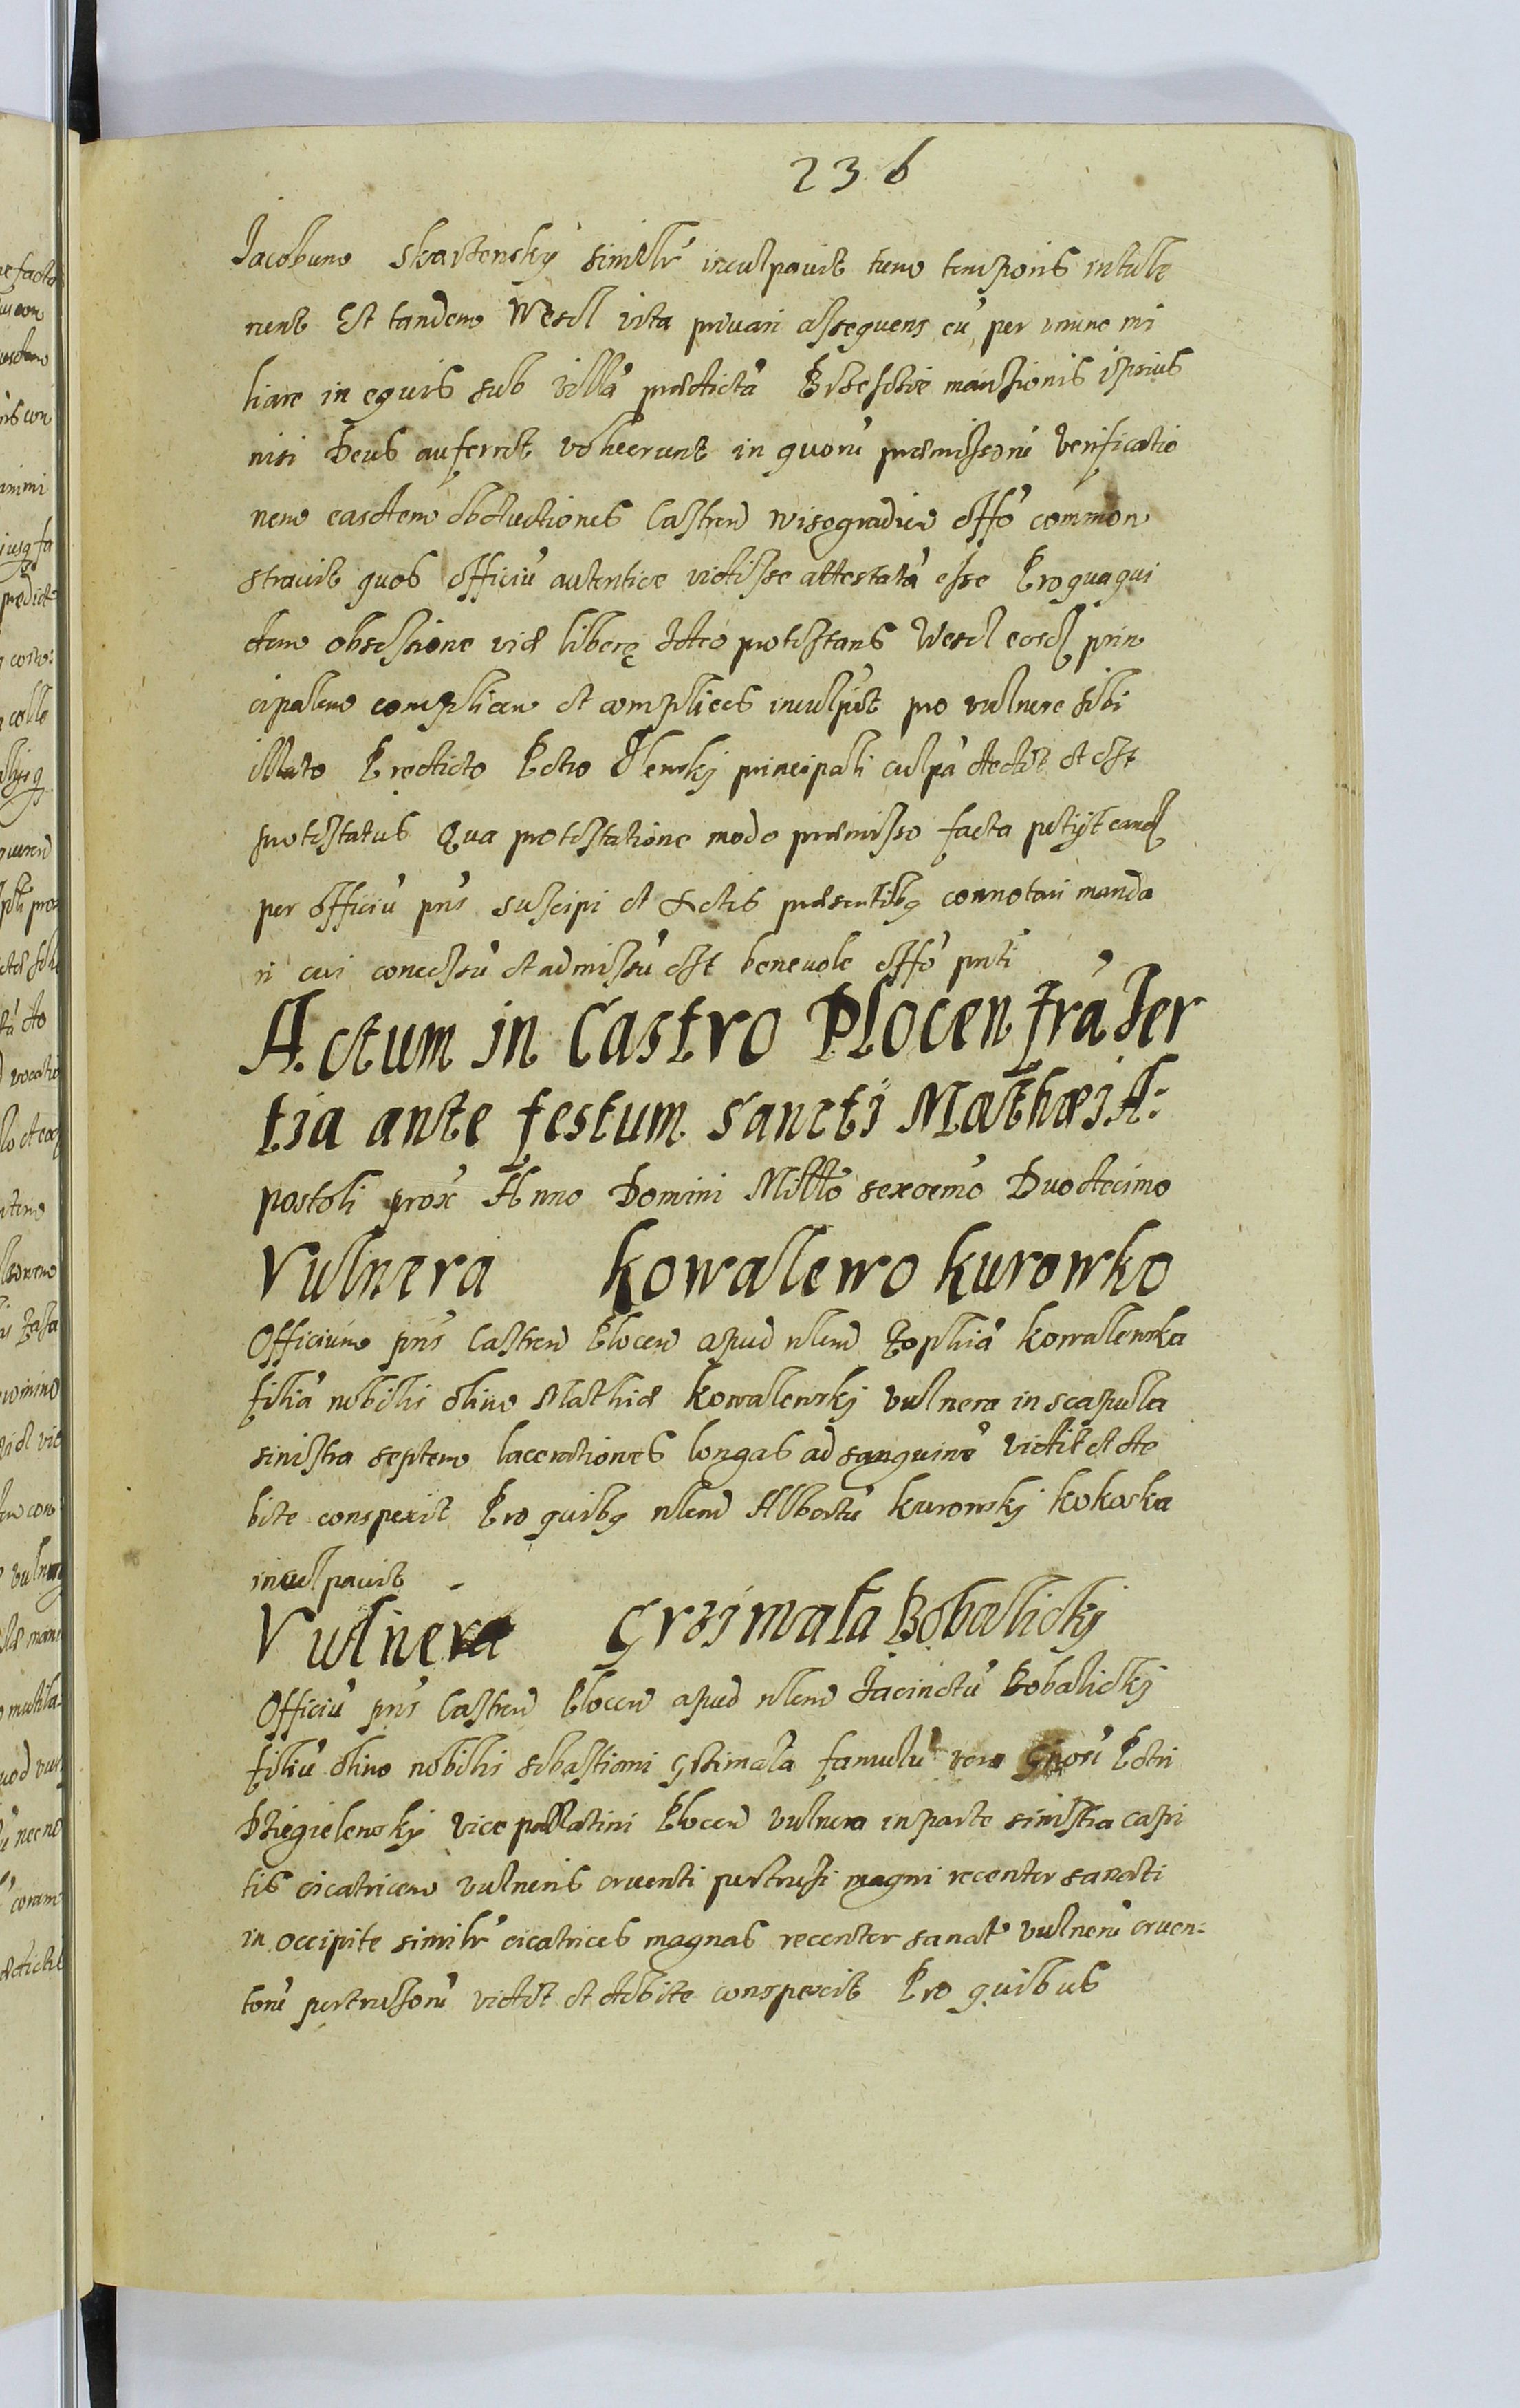 236
Jacobum Skarzensky similr inculpavit tunc temporis intule
runt Et tandem Wescl vita privari assequens eu per unum mi
liare in equis sub villa praedicta mansionis ipsius
nisi Deus auferret voluerunt in quoru praemissoru verificatio
nem easdem obductiones Castren wisogradien offo common
stravit quos officiu autentice vidisse attestatu esse Pro qua qui
dem obsessione viae liberę Ideo protestans Wescl eosd prin
cipalem complicem et complices inculpat pro vulnere sibi
illato Praedicto Petro principali culpa dedit et est
protestatus Qua protestatione modo praemisso facta petijt eand
per officiu pns suscipi et Actis praesentibq connotari manda
ri cui concessu et admissu est benevole offo pnti
Actum in Castro Plocen fra Ter
tia ante festum Sancti Mathaei A:
postoli prox Anno Domini Millo sexcemo Duodecimo
Vulnera Kowalewo Kurowko
Officium pns Castren Plocen apud nlem Zophia Kowalewska
filia nobilis olim Mathiae Kowalewskj vulnera in scapula
sinistra septem lacerationes longas ad sanguine vidit et de
bite conspexit Pro quibq nlem Albertu Kurowskj Kokoska
inculpavit
Vulnera Grzimala Bobalickj
Officiu pns Castren Plocen apud nlem Jacinctu Bobalickj
filiu olim nobilis Sebastiani Grzimala famulu vero Gnosi Petri
Dziegielewskj vice pallatini Plocen vulnera in parte sinistra capi
tis cicatricem vulneris cruenti pertrusi magni recenter sanati
in occipite similr cicatrices magnas recenter sanat vulneru cruen:
toru pertrusoru vidit et debite conspexit Pro quibus